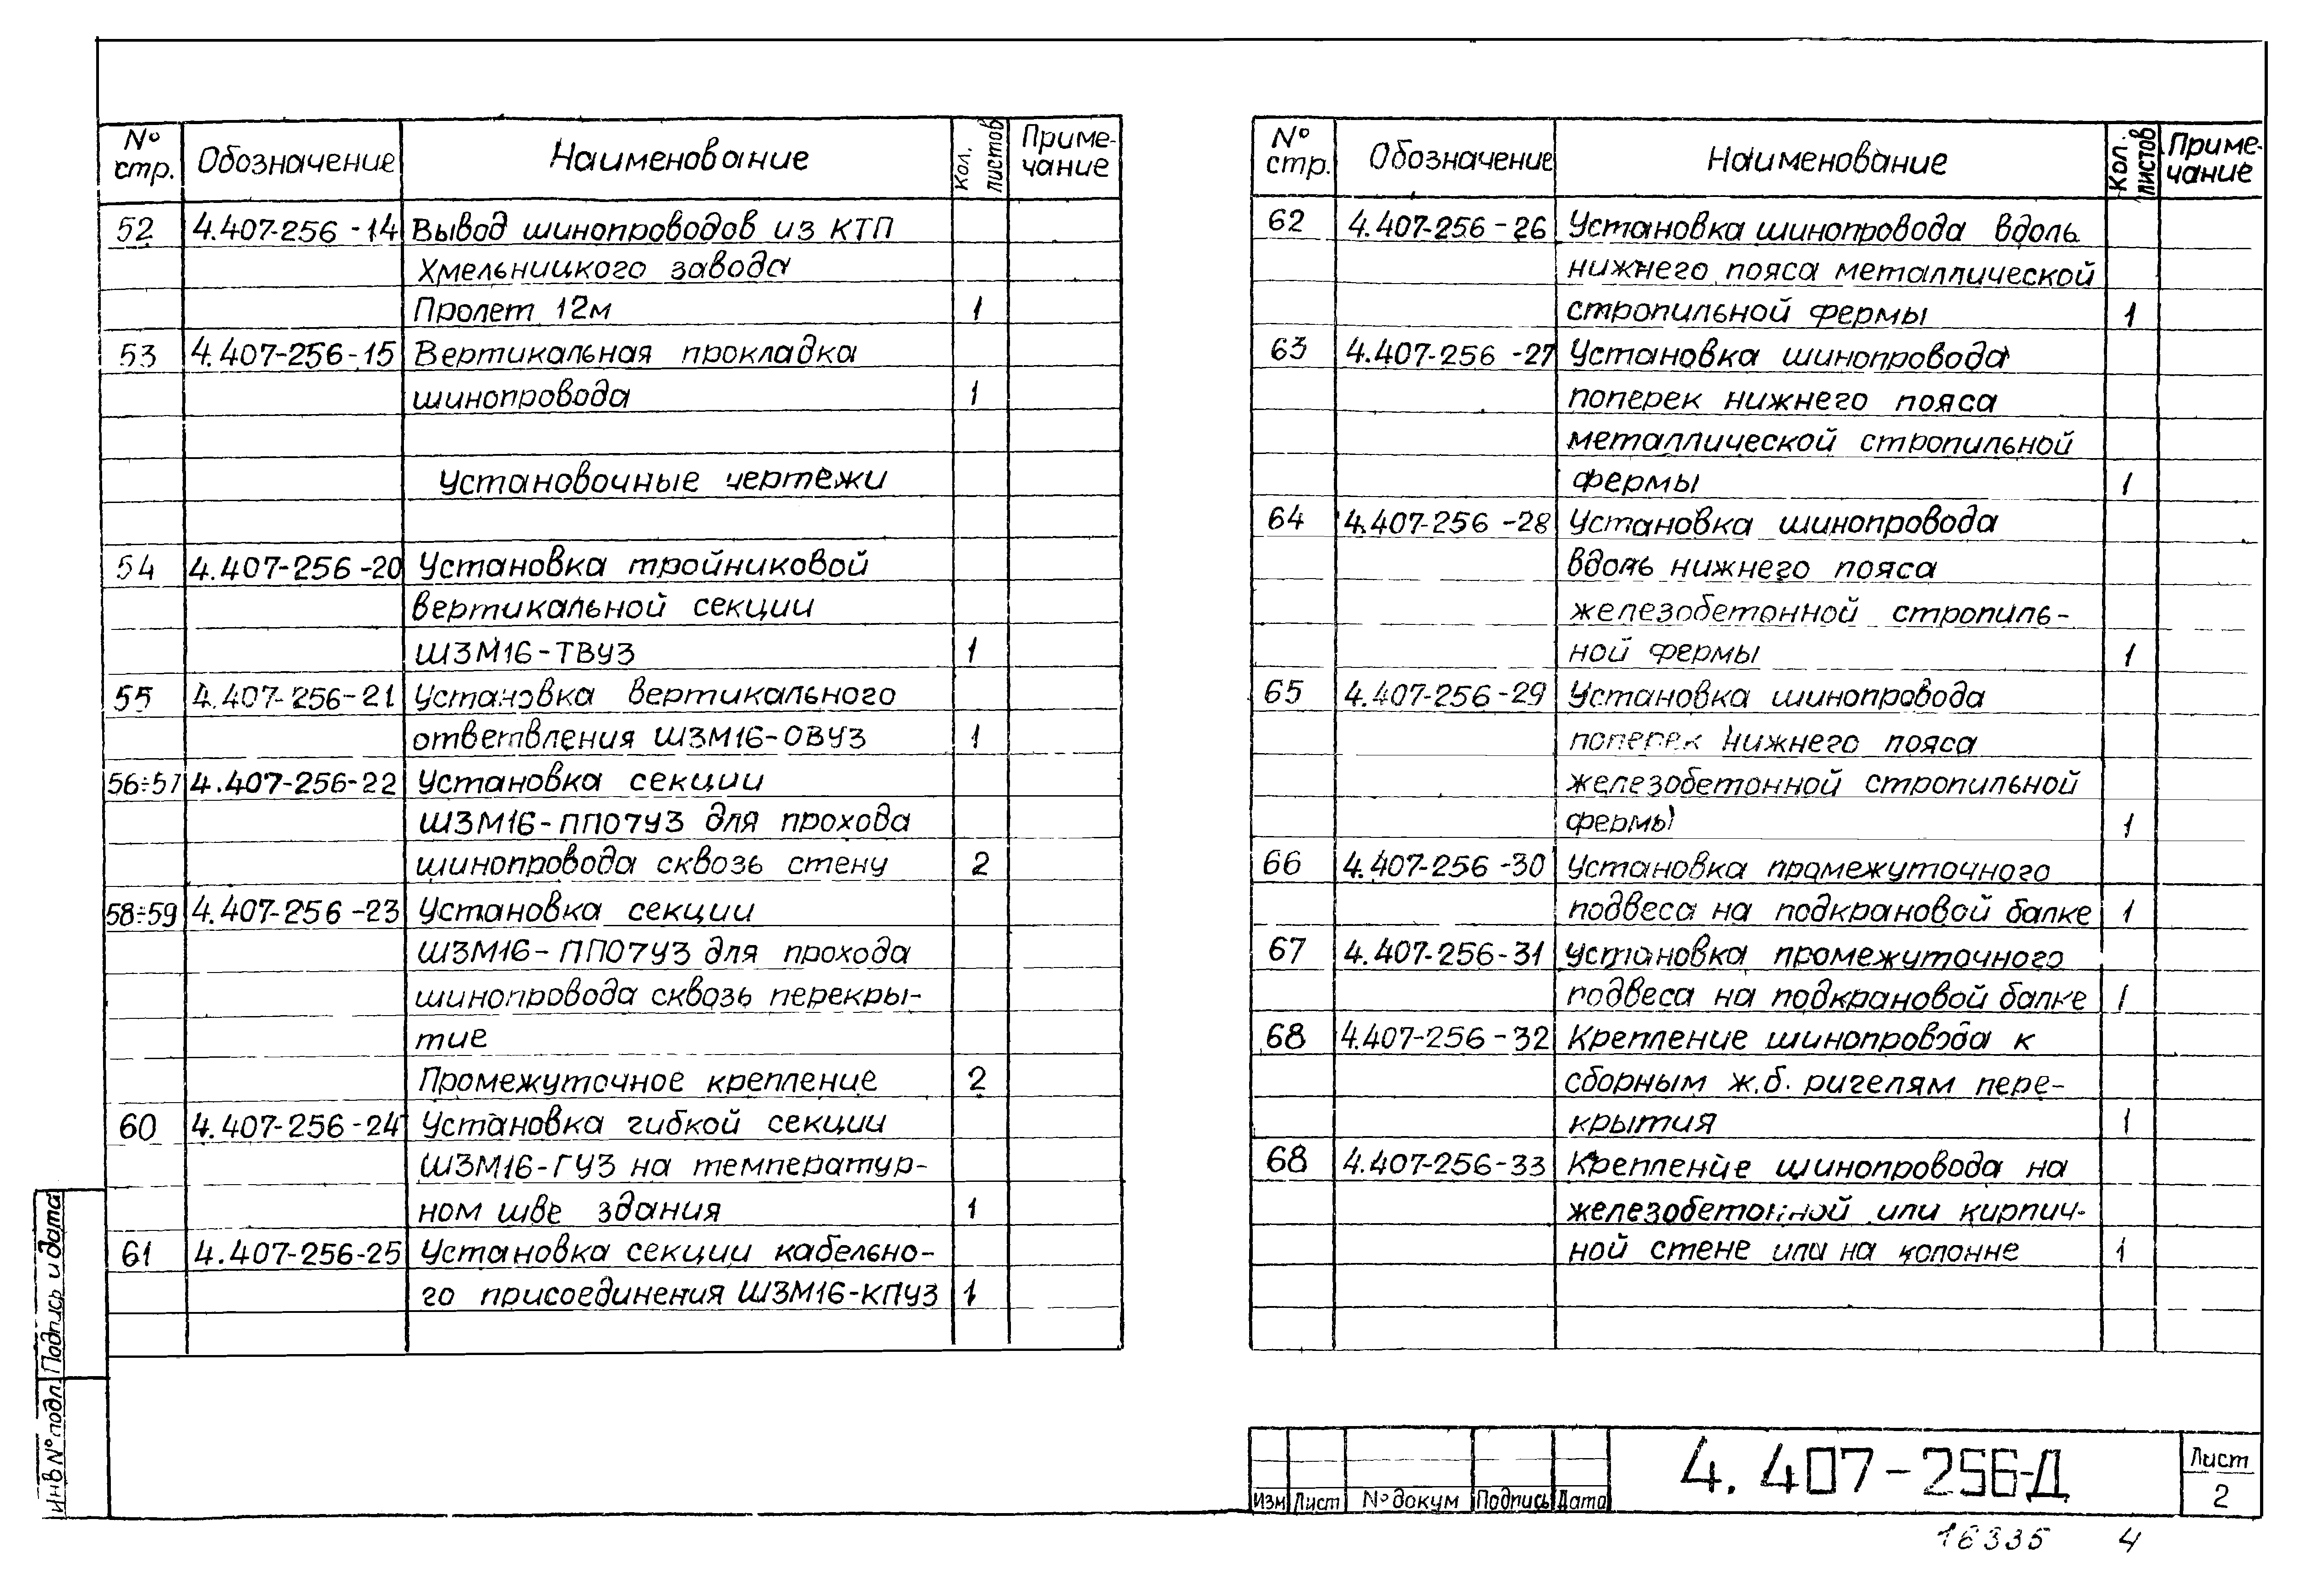 № стр. Обозначение Наименование Кол. листов Приме-чание
52 4.407-256-14 Вывод шинопроводов из КТП
Хмельницкого завода
Пролет 12м 1
53 4.407-256-15 Вертикальная прокладка
шинопровода 1
Установочные чертежи
54 4.407-256-20 Установка тройниковой
вертикальной секции
ШЗМ16-ТВУЗ 1
55 4.407-256-21 Установка вертикального
ответвления ШЗМ16-ОВУЗ 1
56÷57 4.407-256-22 Установка секции
ШЗМ16-ПП07УЗ для прохода
шинопровода сквозь стену 2
58÷59 4.407-256-23 Установка секции
ШЗМ16-ПП07УЗ для прохода
шинопровода сквозь перекры-
тие
Промежуточное крепление 2
60 4.407-256-24 Установка гибкой секции
ШЗМ16-ГУЗ на температур-
ном шве здания 1
61 4.407-256-25 Установка секции кабельно-
го присоединения ШЗМ16-КПУЗ 1
№ стр. Обозначение Наименование Кол. листов Приме-чание
62 4.407-256-26 Установка шинопровода вдоль
нижнего пояса металлической
стропильной фермы 1
63 4.407-256-27 Установка шинопровода
поперек нижнего пояса
металлической стропильной
фермы 1
64 4.407-256-28 Установка шинопровода
вдоль нижнего пояса
железобетонной стропиль-
ной фермы 1
65 4.407-256-29 Установка шинопровода
поперек нижнего пояса
железобетонной стропильной
фермы 1
66 4.407-256-30 Установка промежуточного
подвеса на подкрановой балке 1
67 4.407-256-31 Установка промежуточного
подвеса на подкрановой балке 1
68 4.407-256-32 Крепление шинопровода к
сборным ж.б. ригелям пере-
крытия 1
68 4.407-256-33 Крепление шинопровода на
железобетонной или кирпич-
ной стене или на колонне 1
Инв № подл. Подпись и дата
Изм Лист № докум Подпись Дата
4.407-256-Д
Лист
2
16335 4